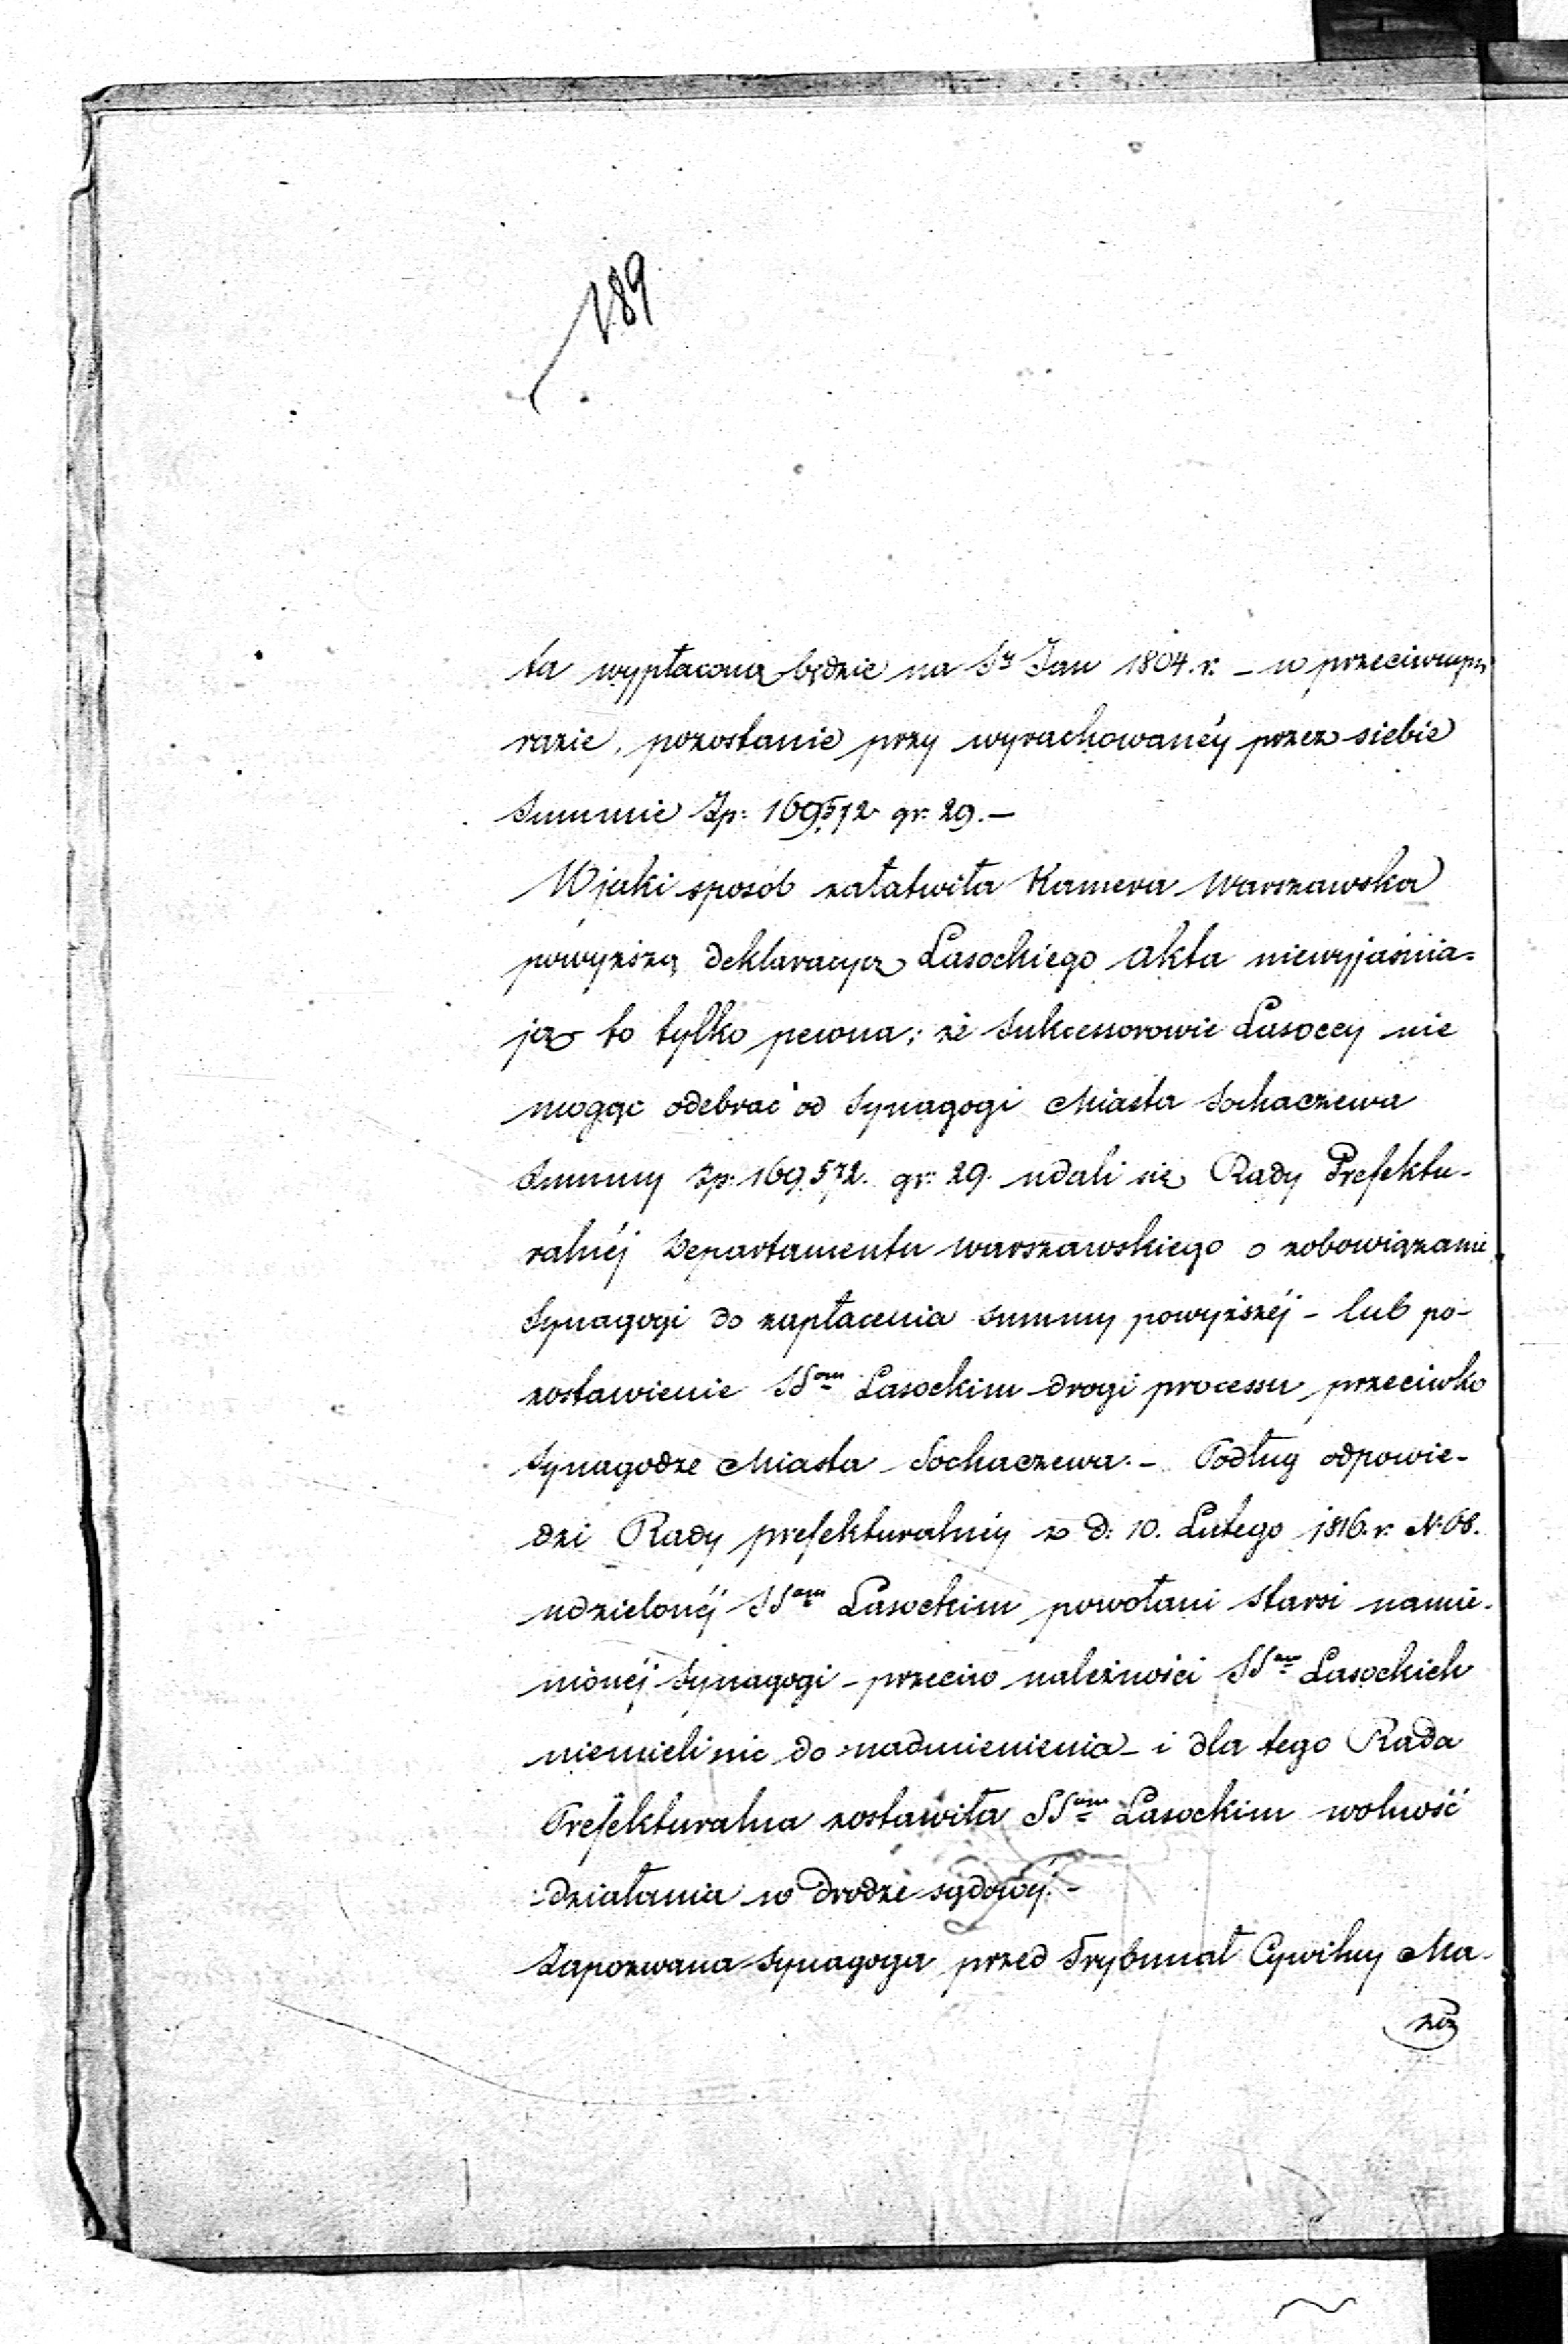 189
ta wypłaconą będzie na Sty Jan 1804. r. – w przeciwnym
razie, pozostanie przy wyrachowanéy przez siebie
Summie Zp: 169,572 gr: 29. –
W jaki sposób załatwiła Kamera Warszawska
powyższą deklaracyą Lasockiego akta niewyjaśnia=
ją to tylko pewna; że Sukcessorowie Lasoccy nie
mogąc odebrać od Synagogi Miasta Sochaczewa
Summy Zp: 169,572. gr: 29. udali się Rady Prefektu-
ralnéj Departamentu Warszawskiego o zobowiązanie
Synagogi do zapłacenia summy powyższéj – lub po-
zostawienie SSom Lasockim drogi processu przeciwko
Synagodze Miasta Sochaczewa. – Podług odpowie-
dzi Rady prefekturalnéy z d: 10. Lutego 1816. r. N. 68.
udzielonéj SSom Lasockim powołani Starsi namie-
nionéj Synagogi – przeciw należności SSów Lasockich
niemieli nic do nadmienienia – i dla tego Rada
Prefekturalna zostawiła SSom Lasockim wolność
działania w drodze sądowéj. –
Zapozwana Synagoga przed Trybunał Cywilny Ma-